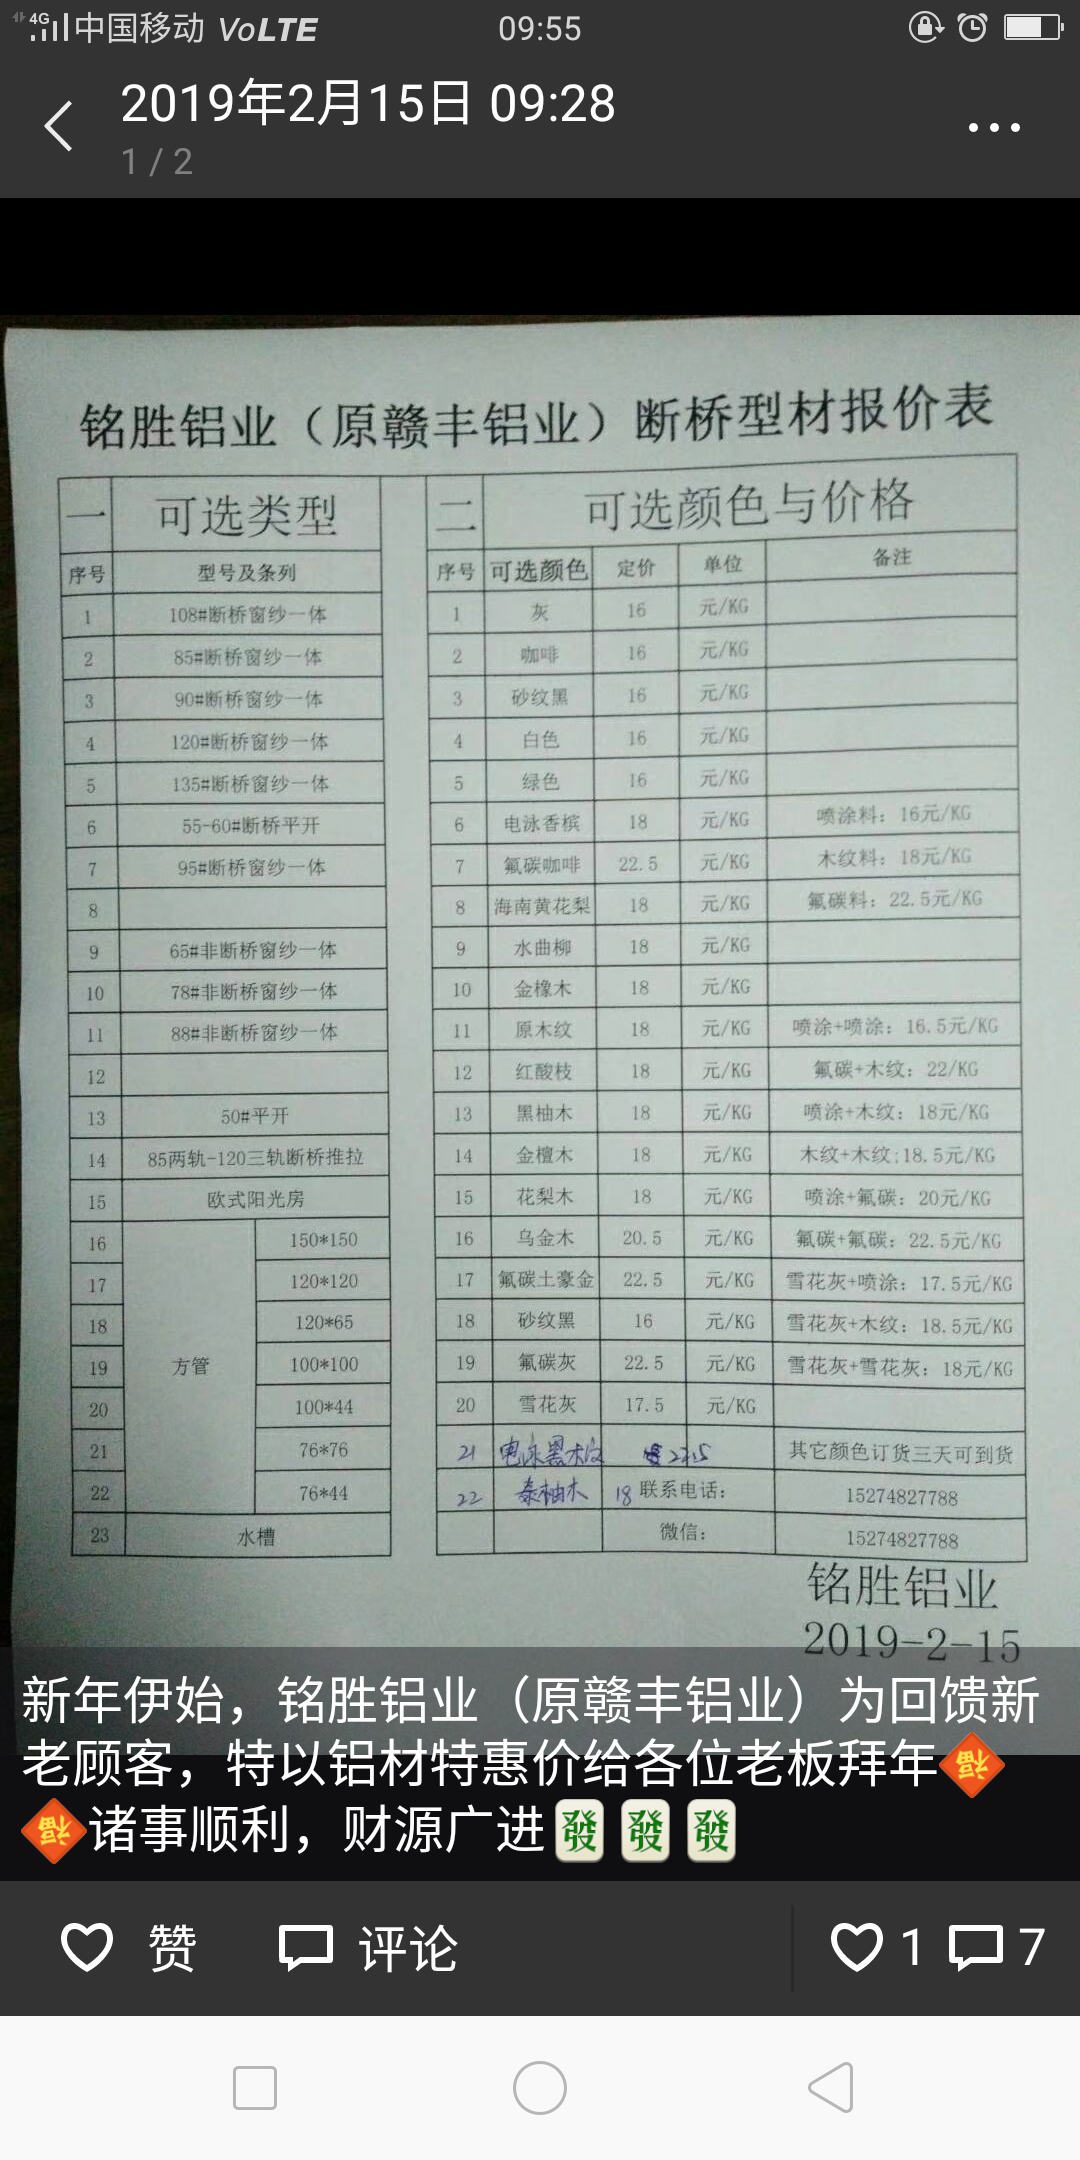 4G 中国移动 VoLTE 09:55
2019年2月15日 09:28
1 / 2
铭胜铝业（原赣丰铝业）断桥型材报价表
一 可选类型 二 可选颜色与价格
序号 型号及条列 序号 可选颜色 定价 单位 备注
1 108#断桥窗纱一体 1 灰 16 元/KG
2 85#断桥窗纱一体 2 咖啡 16 元/KG
3 90#断桥窗纱一体 3 砂纹黑 16 元/KG
4 120#断桥窗纱一体 4 白色 16 元/KG
5 135#断桥窗纱一体 5 绿色 16 元/KG
6 55-60#断桥平开 6 电泳香槟 18 元/KG 喷涂料：16元/KG
7 95#断桥窗纱一体 7 氟碳咖啡 22.5 元/KG 木纹料：18元/KG
8 8 海南黄花梨 18 元/KG 氟碳料：22.5元/KG
9 65#非断桥窗纱一体 9 水曲柳 18 元/KG
10 78#非断桥窗纱一体 10 金橡木 18 元/KG
11 88#非断桥窗纱一体 11 原木纹 18 元/KG 喷涂+喷涂：16.5元/KG
12 12 红酸枝 18 元/KG 氟碳+木纹：22/KG
13 50#平开 13 黑柚木 18 元/KG 喷涂+木纹：18元/KG
14 85两轨-120三轨断桥推拉 14 金檀木 18 元/KG 木纹+木纹;18.5元/KG
15 欧式阳光房 15 花梨木 18 元/KG 喷涂+氟碳：20元/KG
16 150*150 16 乌金木 20.5 元/KG 氟碳+氟碳：22.5元/KG
17 120*120 17 氟碳土豪金 22.5 元/KG 雪花灰+喷涂：17.5元/KG
18 120*65 18 砂纹黑 16 元/KG 雪花灰+木纹：18.5元/KG
19 方管 100*100 19 氟碳灰 22.5 元/KG 雪花灰+雪花灰：18元/KG
20 100*44 20 雪花灰 17.5 元/KG
21 76*76 21 电泳黑 其它颜色订货三天可到货
22 76*44 22 泰柚木 18 联系电话： 15274827788
23 水槽 微信： 15274827788
铭胜铝业
2019-2-15
新年伊始，铭胜铝业（原赣丰铝业）为回馈新
老顾客，特以铝材特惠价给各位老板拜年福
福诸事顺利，财源广进發發發
赞 评论 1 7